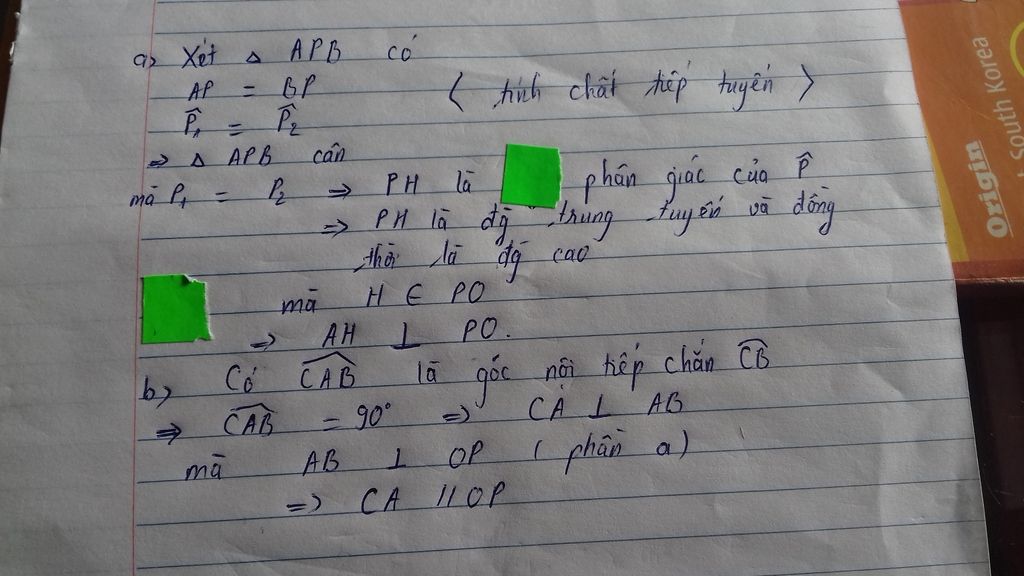 a) Xét △ APB có
AP = BP ( tính chất tiếp tuyến )
P̂₁ = P̂₂
⇒ △ APB cân
mà P₁ = P₂ ⇒ PH là phân giác của P̂
⇒ PH là đg trung tuyến và đồng
thời là đg cao
mà H ∈ PO
⇒ AH ⊥ PO.
b) Có \widehat{CAB} là góc nội tiếp chắn \widehat{CB}
⇒ \widehat{CAB} = 90° ⇒ CA ⊥ AB
mà AB ⊥ OP ( phần a)
⇒ CA // OP
Origin
South Korea